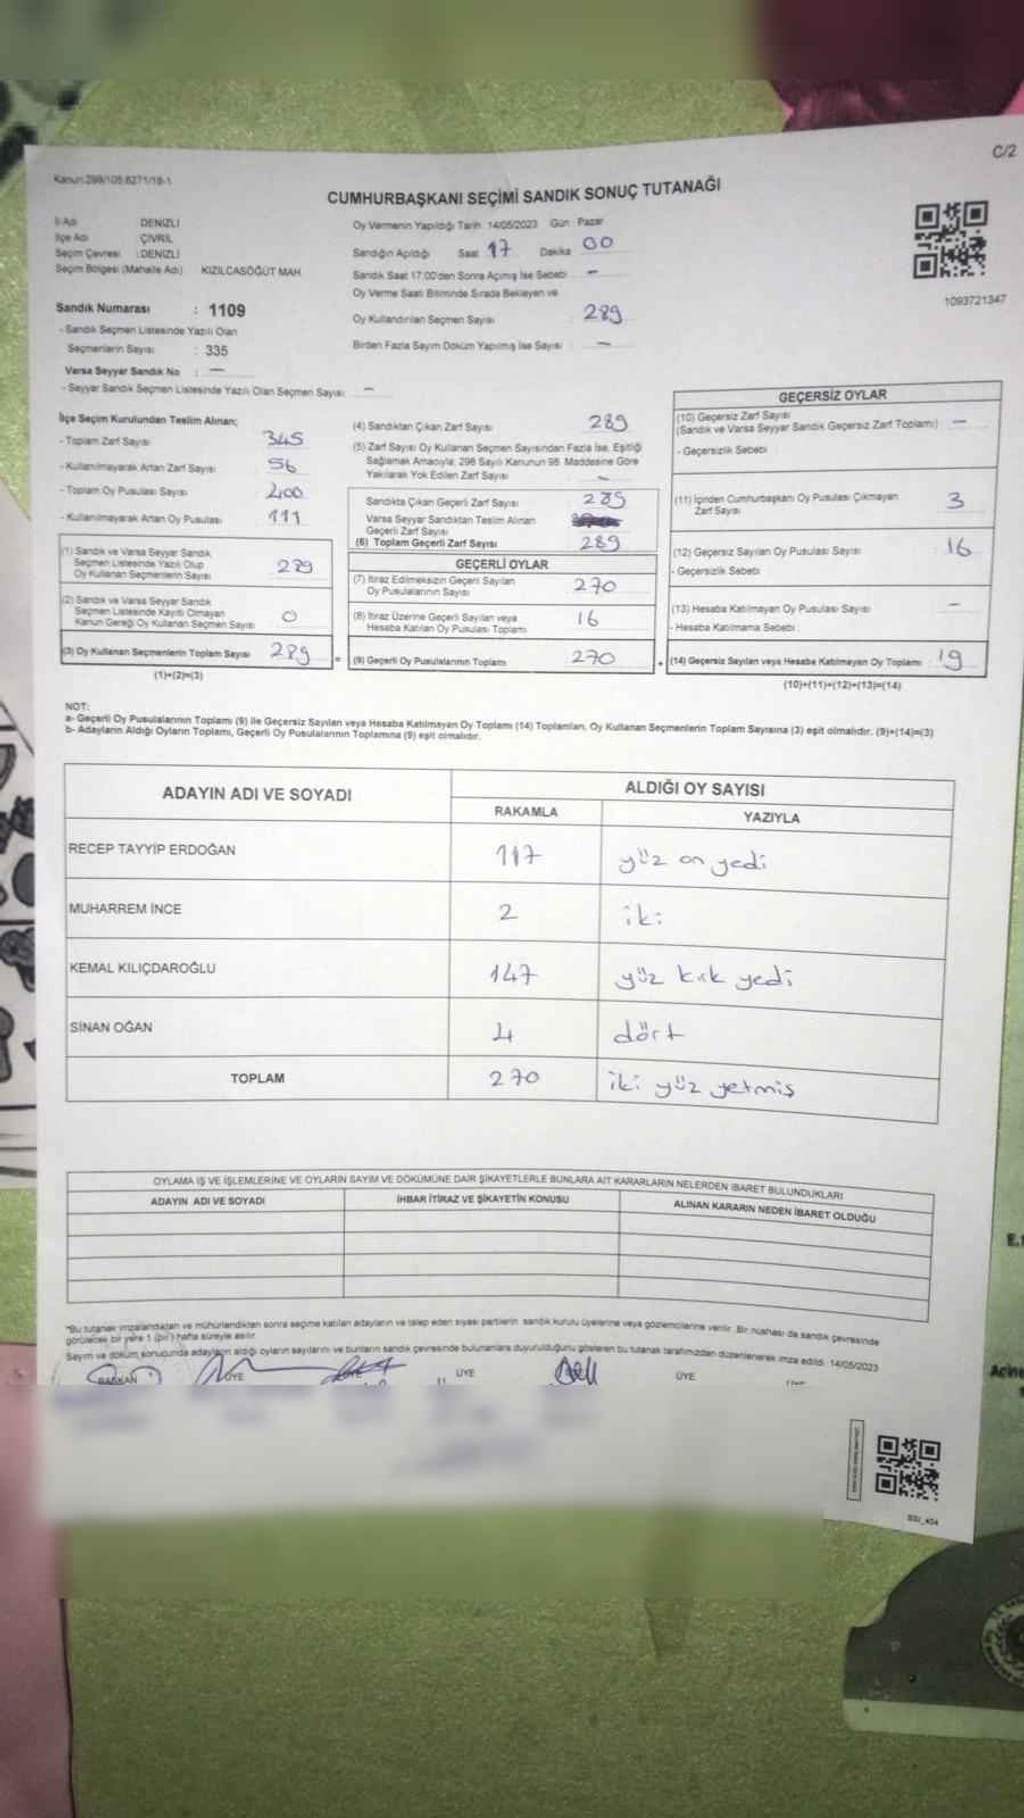 C/2
Kanun:298/105.6271/18-1
CUMHURBAŞKANI SEÇİMİ SANDIK SONUÇ TUTANAĞI
İl Adı DENİZLİ
İlçe Adı ÇİVRİL
Seçim Çevresi : DENİZLİ
Seçim Bölgesi (Mahalle Adı) KIZILCASÖĞÜT MAH.
Oy Vermenin Yapıldığı Tarih: 14/05/2023 Gün: Pazar
Sandığın Açıldığı Saat 17 Dakika 00
Sandık Saat 17:00'den Sonra Açılmış İse Sebebi —
Oy Verme Saati Bitiminde Sırada Bekleyen ve
Oy Kullandırılan Seçmen Sayısı 289
Birden Fazla Sayım Döküm Yapılmış İse Sayısı —
1093721347
Sandık Numarası : 1109
- Sandık Seçmen Listesinde Yazılı Olan
Seçmenlerin Sayısı : 335
Varsa Seyyar Sandık No : —
- Seyyar Sandık Seçmen Listesinde Yazılı Olan Seçmen Sayısı —
İlçe Seçim Kurulundan Teslim Alınan;
- Toplam Zarf Sayısı 345
- Kullanılmayarak Artan Zarf Sayısı 56
- Toplam Oy Pusulası Sayısı 400
- Kullanılmayarak Artan Oy Pusulası 111
(1) Sandık ve Varsa Seyyar Sandık
Seçmen Listesinde Yazılı Olup
Oy Kullanan Seçmenlerin Sayısı 289
(2) Sandık ve Varsa Seyyar Sandık
Seçmen Listesinde Kayıtlı Olmayan
Kanun Gereği Oy Kullanan Seçmen Sayısı 0
(3) Oy Kullanan Seçmenlerin Toplam Sayısı 289 =
(1)+(2)=(3)
(4) Sandıktan Çıkan Zarf Sayısı 289
(5) Zarf Sayısı Oy Kullanan Seçmen Sayısından Fazla İse, Eşitliği
Sağlamak Amacıyla; 298 Sayılı Kanunun 98. Maddesine Göre
Yakılarak Yok Edilen Zarf Sayısı —
Sandıkta Çıkan Geçerli Zarf Sayısı 289
Varsa Seyyar Sandıktan Teslim Alınan
Geçerli Zarf Sayısı
(6) Toplam Geçerli Zarf Sayısı 289
GEÇERLİ OYLAR
(7) İtiraz Edilmeksizin Geçerli Sayılan
Oy Pusulalarının Sayısı 270
(8) İtiraz Üzerine Geçerli Sayılan veya
Hesaba Katılan Oy Pusulası Toplamı 16
(9) Geçerli Oy Pusulalarının Toplamı 270 +
GEÇERSİZ OYLAR
(10) Geçersiz Zarf Sayısı
(Sandık ve Varsa Seyyar Sandık Geçersiz Zarf Toplamı) —
- Geçersizlik Sebebi
(11) İçinden Cumhurbaşkanı Oy Pusulası Çıkmayan
Zarf Sayısı 3
(12) Geçersiz Sayılan Oy Pusulası Sayısı 16
- Geçersizlik Sebebi
(13) Hesaba Katılmayan Oy Pusulası Sayısı —
- Hesaba Katılmama Sebebi :
(14) Geçersiz Sayılan veya Hesaba Katılmayan Oy Toplamı 19
(10)+(11)+(12)+(13)=(14)
NOT:
a- Geçerli Oy Pusulalarının Toplamı (9) ile Geçersiz Sayılan veya Hesaba Katılmayan Oy Toplamı (14) Toplamları, Oy Kullanan Seçmenlerin Toplam Sayısına (3) eşit olmalıdır. (9)+(14)=(3)
b- Adayların Aldığı Oyların Toplamı, Geçerli Oy Pusulalarının Toplamına (9) eşit olmalıdır.
ADAYIN ADI VE SOYADI ALDIĞI OY SAYISI
RAKAMLA YAZIYLA
RECEP TAYYİP ERDOĞAN 117 yüz on yedi
MUHARREM İNCE 2 iki
KEMAL KILIÇDAROĞLU 147 yüz kırk yedi
SİNAN OĞAN 4 dört
TOPLAM 270 iki yüz yetmiş
OYLAMA İŞ VE İŞLEMLERİNE VE OYLARIN SAYIM VE DÖKÜMÜNE DAİR ŞİKAYETLERLE BUNLARA AİT KARARLARIN NELERDEN İBARET BULUNDUKLARI
ADAYIN ADI VE SOYADI İHBAR İTİRAZ VE ŞİKAYETİN KONUSU ALINAN KARARIN NEDEN İBARET OLDUĞU
*Bu tutanak imzalandıktan ve mühürlendikten sonra seçime katılan adayların ve talep eden siyasi partilerin sandık kurulu üyelerine veya gözlemcilerine verilir. Bir nüshası da sandık çevresinde
görülecek bir yere 1 (bir) hafta süreyle asılır.
Sayım ve döküm sonucunda adayların aldığı oyların sayılarını ve bunların sandık çevresinde bulunanlara duyurulduğunu gösteren bu tutanak tarafımızdan düzenlenerek imza edildi. 14/05/2023
BAŞKAN ÜYE ÜYE ÜYE ÜYE